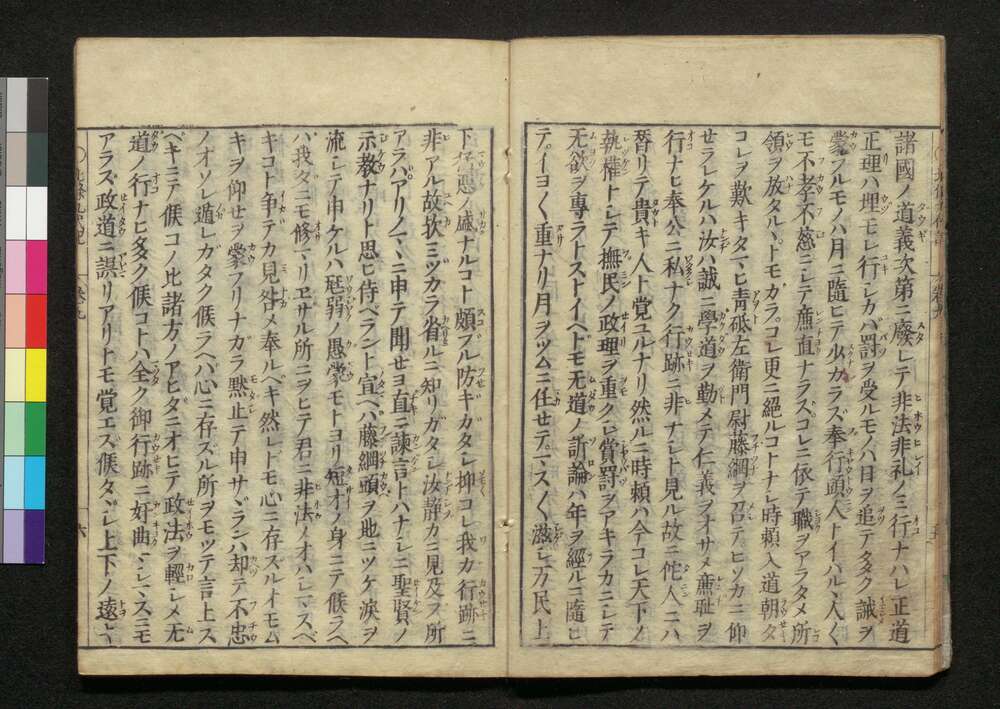 諸國ノ道義次第ニ廢レテ非法非礼ノミ行ナハレ正道
正理ハ埋モレ行シカバ罰ヲ受ルモノハ日ヲ追テタタク誡ヲ
蒙フルモノハ月ニ隨ヒテ少カラズ奉行頭人トイハル人〱
モ不孝不慈ニシテ廉直ナラズコレニ依テ職ヲアラタメ所
領ヲ放タルヽトモガラコレ更ニ絕ルコトナシ時頼入道朝夕
コレヲ歎キタマヒ青砥左衛門尉藤綱ヲ召テヒソカニ仰
セラレケルハ汝ハ誠ニ學道ヲ勤メテ仁義ヲオサメ廉耻ヲ
行ナヒ奉公ニ私ナク行跡ニ非ナシト見ル故ニ佗人ニハ
替リテ貴キ人ト覚ユルナリ然ルニ時頼ハ今コレ天下ノ
執權トシテ撫民ノ政理ヲ重クシ賞罰ヲアキラカニシテ
无欲ヲ專ラトストイヘドモ无道ノ訴論ハ年ヲ經ルニ隨ヒ
テイヨ〱重ナリ月ヲツムニ任セテマス〱滋シ万民上
下ノ盛ナルコト頗ブル防ギガタシ抑コレ我カ行跡ニ
非アル故欤ミヅカラ省ルニ知リガタシ汝静カニ見及ブ所
アラハアリノマヽニ申テ聞セヨ直ニ諫言トハナシニ聖賢ノ
示教ナリト思ヒ侍ベラント宣ヘバ藤綱頭ヲ地ニツケ淚ヲ
流シテ申ケルハ尩弱ノ愚蒙モトヨリ短才ノ身ニテ候ラヘ
バ我タニモ修マリヱサル所ニヲヒテ君ニ非法ノオハシマスベ
キコト争テカ見咎メ奉ルベキ然レドモ心ニ存ズルトイモム
キヲ仰セヲ蒙フリナガラ黙止テ申サヾランハ却テ不忠
ノオソレ遁レガタク候ラヘハ心ニ存ズル所ヲモツテ言上ス
ベキニテ候コノ比諸方ノアヒダニオヒテ政法ヲ輕シメ无
道ノ行ナヒ多ク候コトハ全ク御行跡ニ奸曲マシマスニモ
アラズ政道ニ誤リアリトモ覚エズ候タヾシ上下ノ遠シト
六